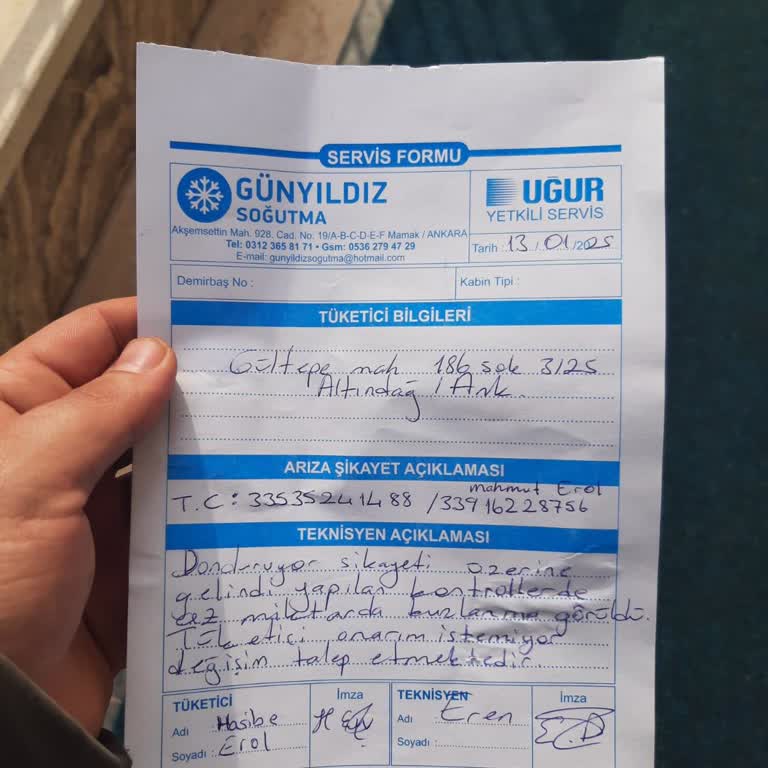 SERVİS FORMU
GÜNYILDIZ
SOĞUTMA
Akşemsettin Mah. 928. Cad. No: 19/A-B-C-D-E-F Mamak / ANKARA
Tel: 0312 365 81 71 • Gsm: 0536 279 47 29
E-mail: gunyildizsogutma@hotmail.com
UĞUR
YETKİLİ SERVİS
Tarih : 13 / 01 / 2025
Demirbaş No :
Kabin Tipi :
TÜKETİCİ BİLGİLERİ
Gültepe mah 186 sok 3/25
Altındağ / Ank.
ARIZA ŞİKAYET AÇIKLAMASI
mahmut Erol
T.C : 33535241488 / 33916228756
TEKNİSYEN AÇIKLAMASI
Donduruyor şikayeti özerine
gelindi yapılan kontrollerde
ez miktarda buzlanma görüldü.
Tüketici onarım istemiyor
değişim talep etmektedir.
TÜKETİCİ
İmza
Adı Hasibe
Soyadı : Erol
TEKNİSYEN
İmza
Adı Eren
Soyadı :